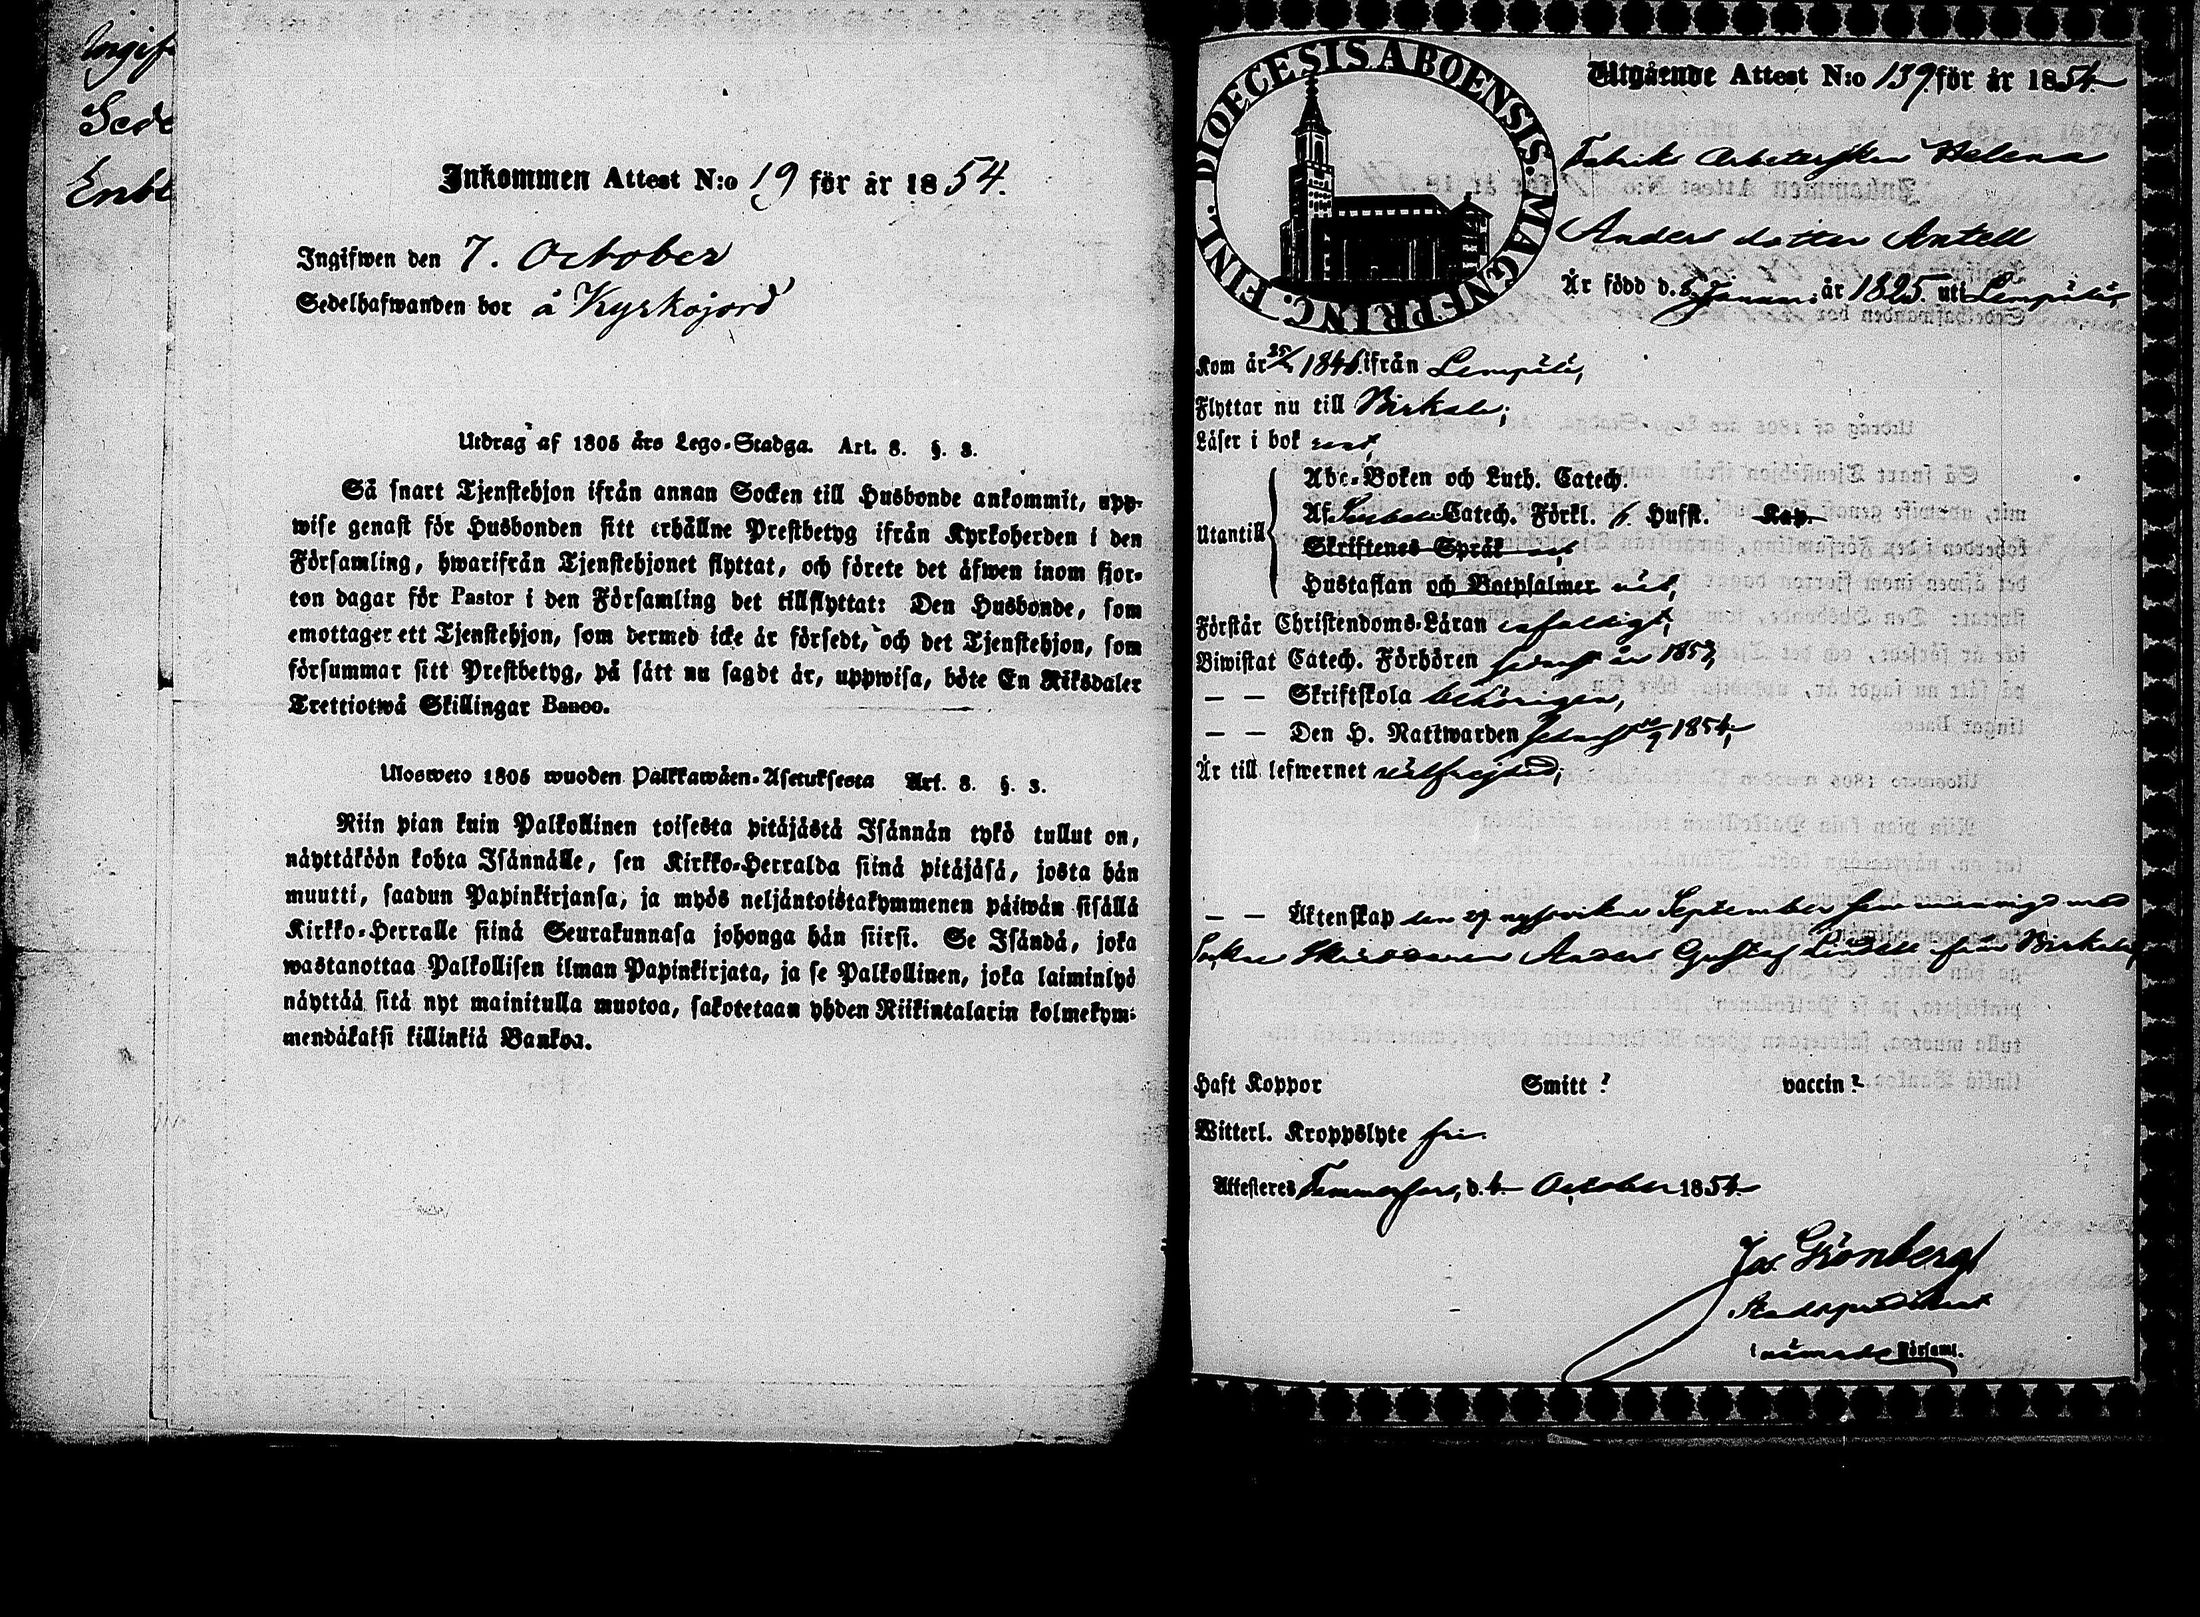 Ingif
Sede
Enkl
Inkommen Attest N:o 19 för år 1854.
Ingifwen den 7. October
Sedelhafwanden bor å Kyrkojord
Utdrag af 1805 års Lego-Stadga. Art. 8. §. 3.
Så snart Tjenstehjon ifrån annan Socken till Husbonde ankommit, upp-
wise genast för Husbonden sitt erhållne Prestbetyg ifrån Kyrkoherden i den
Församling, hwarifrån Tjenstehjonet flyttat, och förete det äfwen inom fjor-
ton dagar för Pastor i den Församling det tillflyttat: Den Husbonde, som
emottager ett Tjenstehjon, som dermed icke är försedt, och det Tjenstehjon, som
försummar sitt Prestbetyg, på sätt nu sagdt är, uppwisa, böte En Riksdaler
Trettiotwå Skillingar Banco.
Ulosweto 1805 wuoden Palkkawäen-Asetuksesta Art. 8. §. 3.
Niin pian kuin Palkollinen toisesta pitäjästä Isännän tykö tullut on,
näyttäköön kohta Isännälle, sen Kirkko-Herralda siinä pitäjäsä, josta hän
muutti, saadun Papinkirjansa, ja myös neljäntoistakymmenen päiwän sisällä
Kirkko-Herralle siinä Seurakunnasa johonga hän siirsi. Se Isändä, joka
wastanottaa Palkollisen ilman Papinkirjata, ja se Palkollinen, joka laiminlyö
näyttää sitä nyt mainitulla muotoa, sakotetaan yhden Riikintalarin kolmekym-
mendäkaksi killinkiä Bankoa.
DIOECESIS ABOENSIS. MAGNI PRINC. FINL.
Utgående Attest N:o 139 för år 1854.
Fabriks Arbeterskan Helena
Anders dotter Antell
Är född d. 5 Januari år 1825. uti Lempälä,
Kom år 25/ 1846. ifrån Lempälä,
Flyttar nu till Birkala;
Läser i bok rent,
Utantill
Abc-Boken och Luth. Catech.
Af Catech. Förkl. Hufst. Kap.
Skriftenes Språk
Hustaflan och Botpsalmer nöjl,
Förstår Christendoms-Läran enfaldigt,
Biwistat Catech. Förhören senast år 1853,
— — Skriftskola behörigen,
— — Den H. Nattwarden senast 10/9 1854,
Är till lefwernet wälfrejdad;
— — Äktenskap den 29 nyssvikne September sammanvigd med
Socken Skräddaren Anders Gustaf Lindell från Birkala,
Haft Koppor Smitt ? vaccin ?
Witterl. Kroppslyte fri.
Attesteres Tammerfors, d. 4 October 1854.
Jos. Grönberg
Stadspredikant
i nämnde Församl.